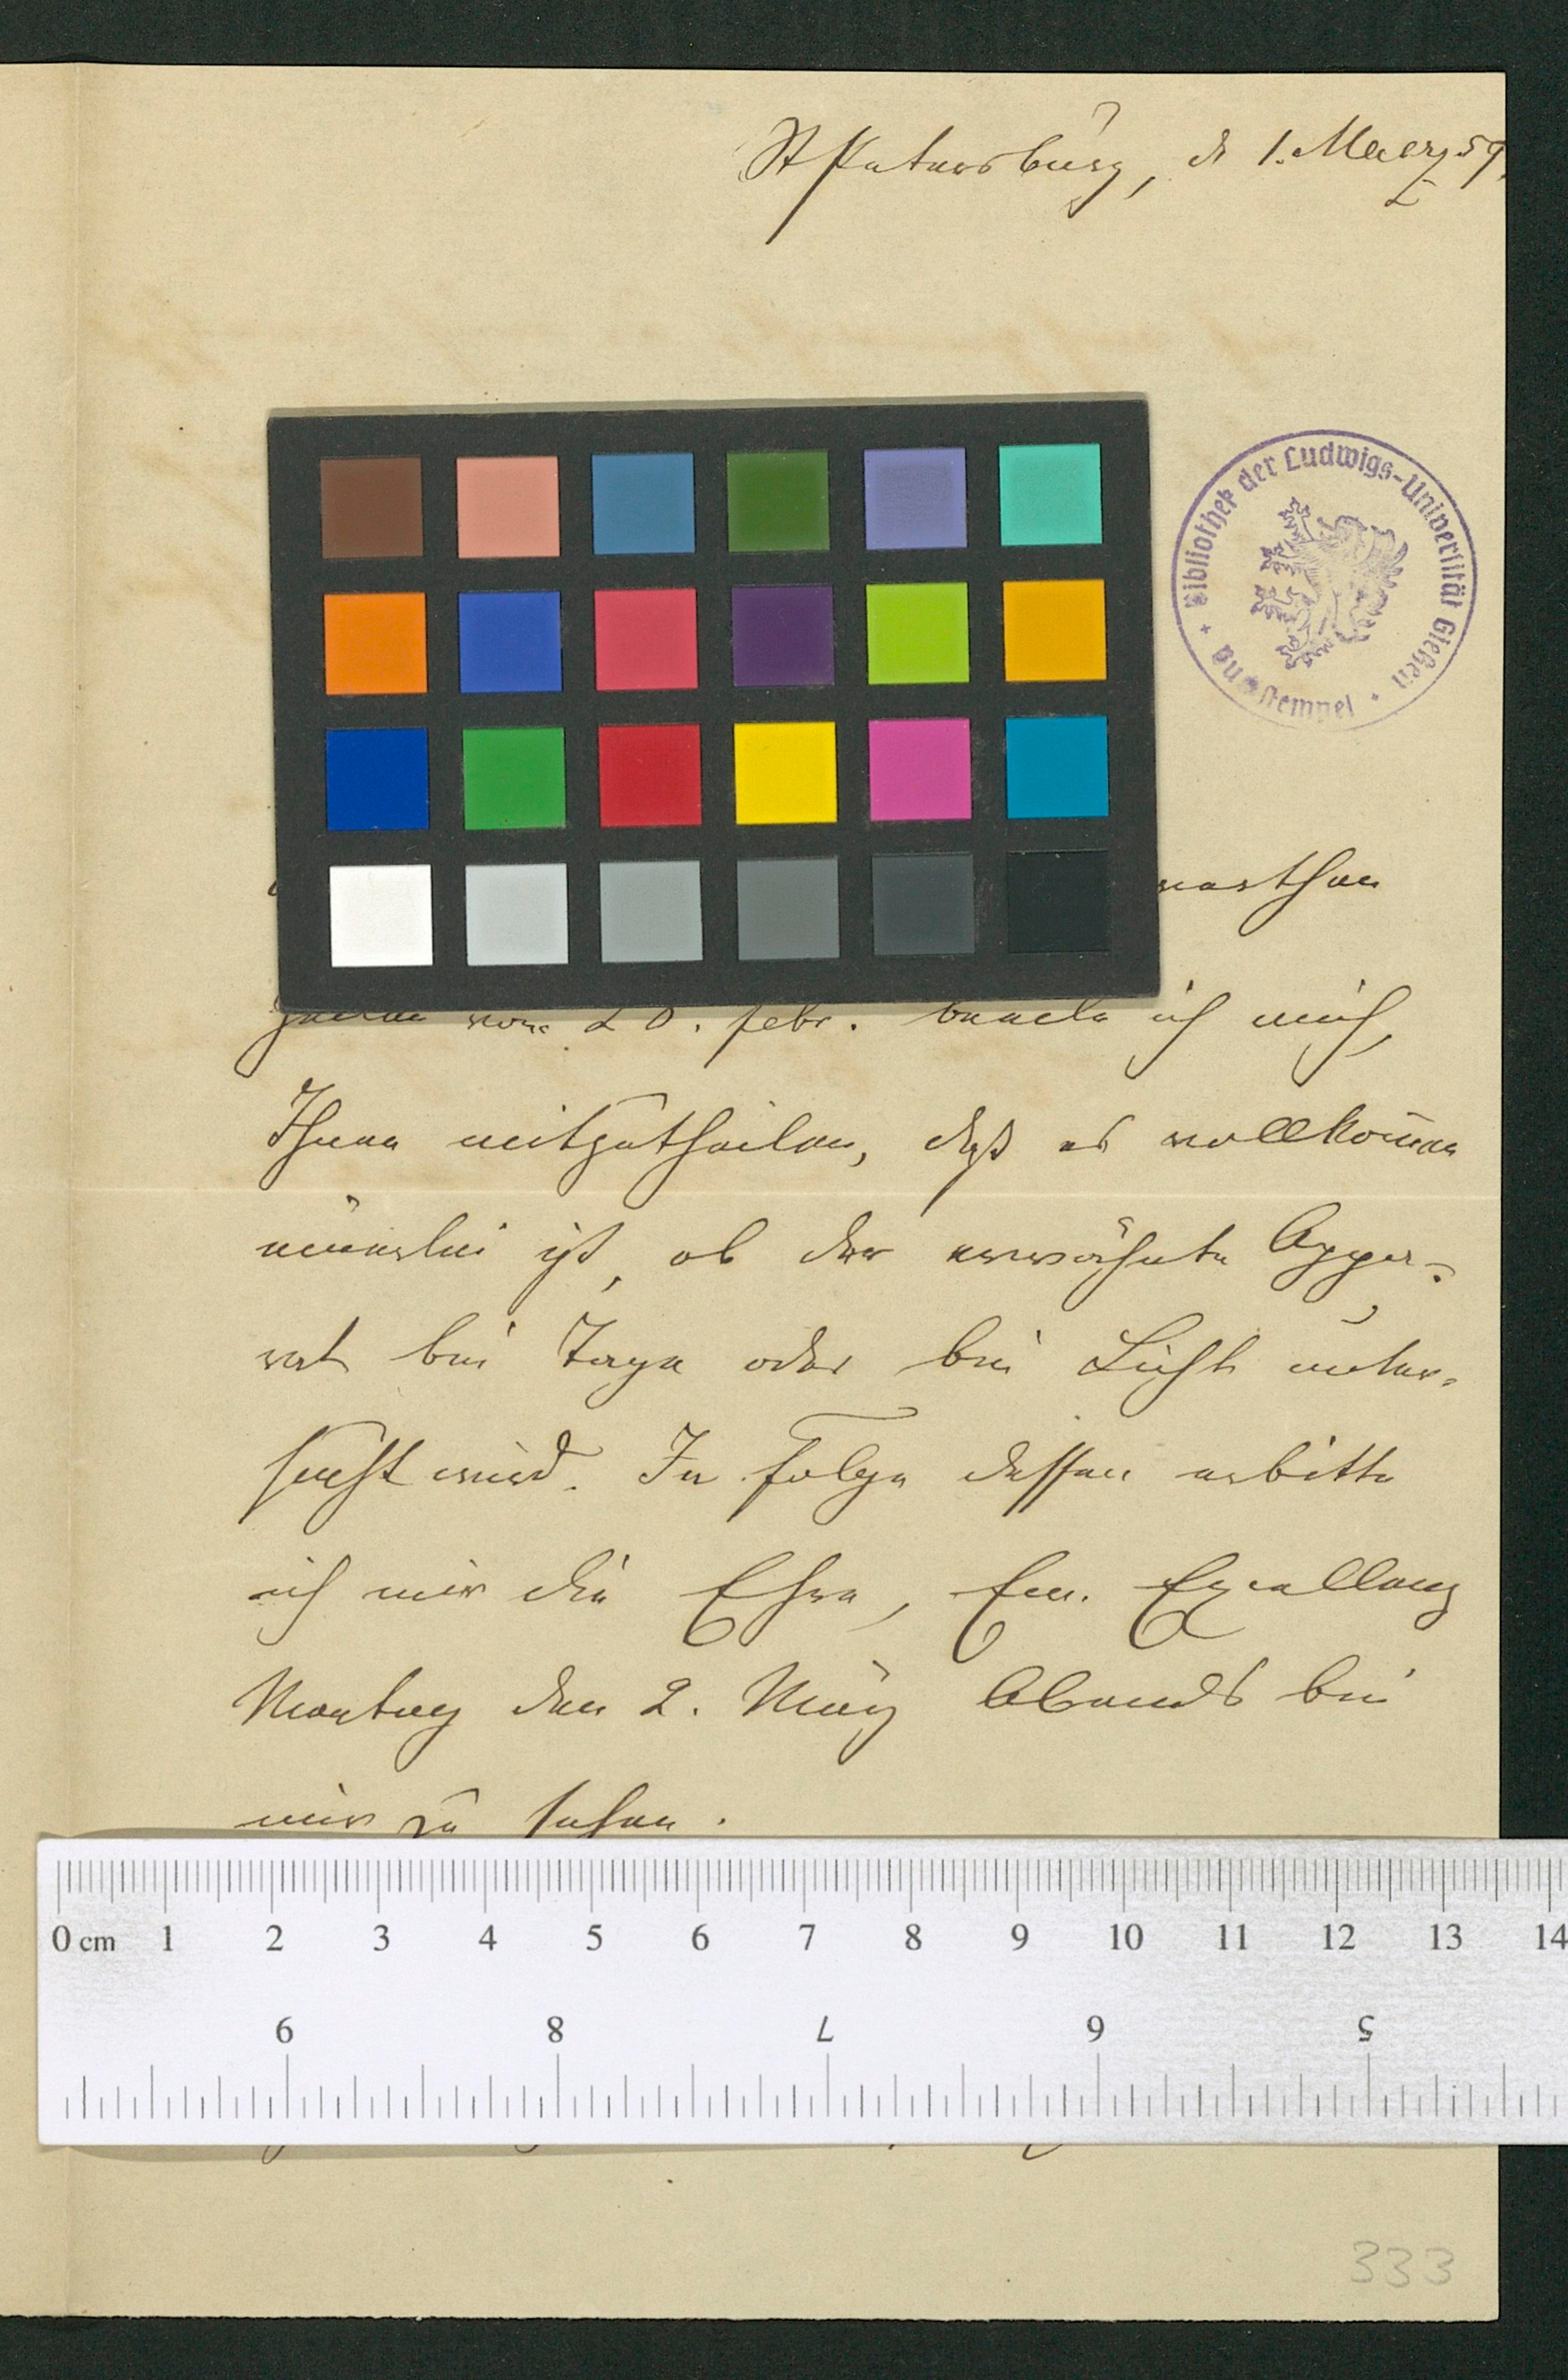 St Petersburg, d 1. Maerz 59.
Bibliothek der Ludwigs-Universität Gießen
werthen
Zeilen vom 20. Febr. beeile ich mich,
Ihnen mitzutheilen, daß es vollkomen
einerlei ist, ob der erwähnte Appa-
rat bei Tage oder bei Licht unter-
sucht wird. In Folge dessen erbitte
ich mir die Ehre, Ew. Excellenz
Montag den 2. März Abends bei
mir zu sehen.
0 cm 1 2 3 4 5 6 7 8 9 10 11 12 13 14
9 8 7 6 5
333